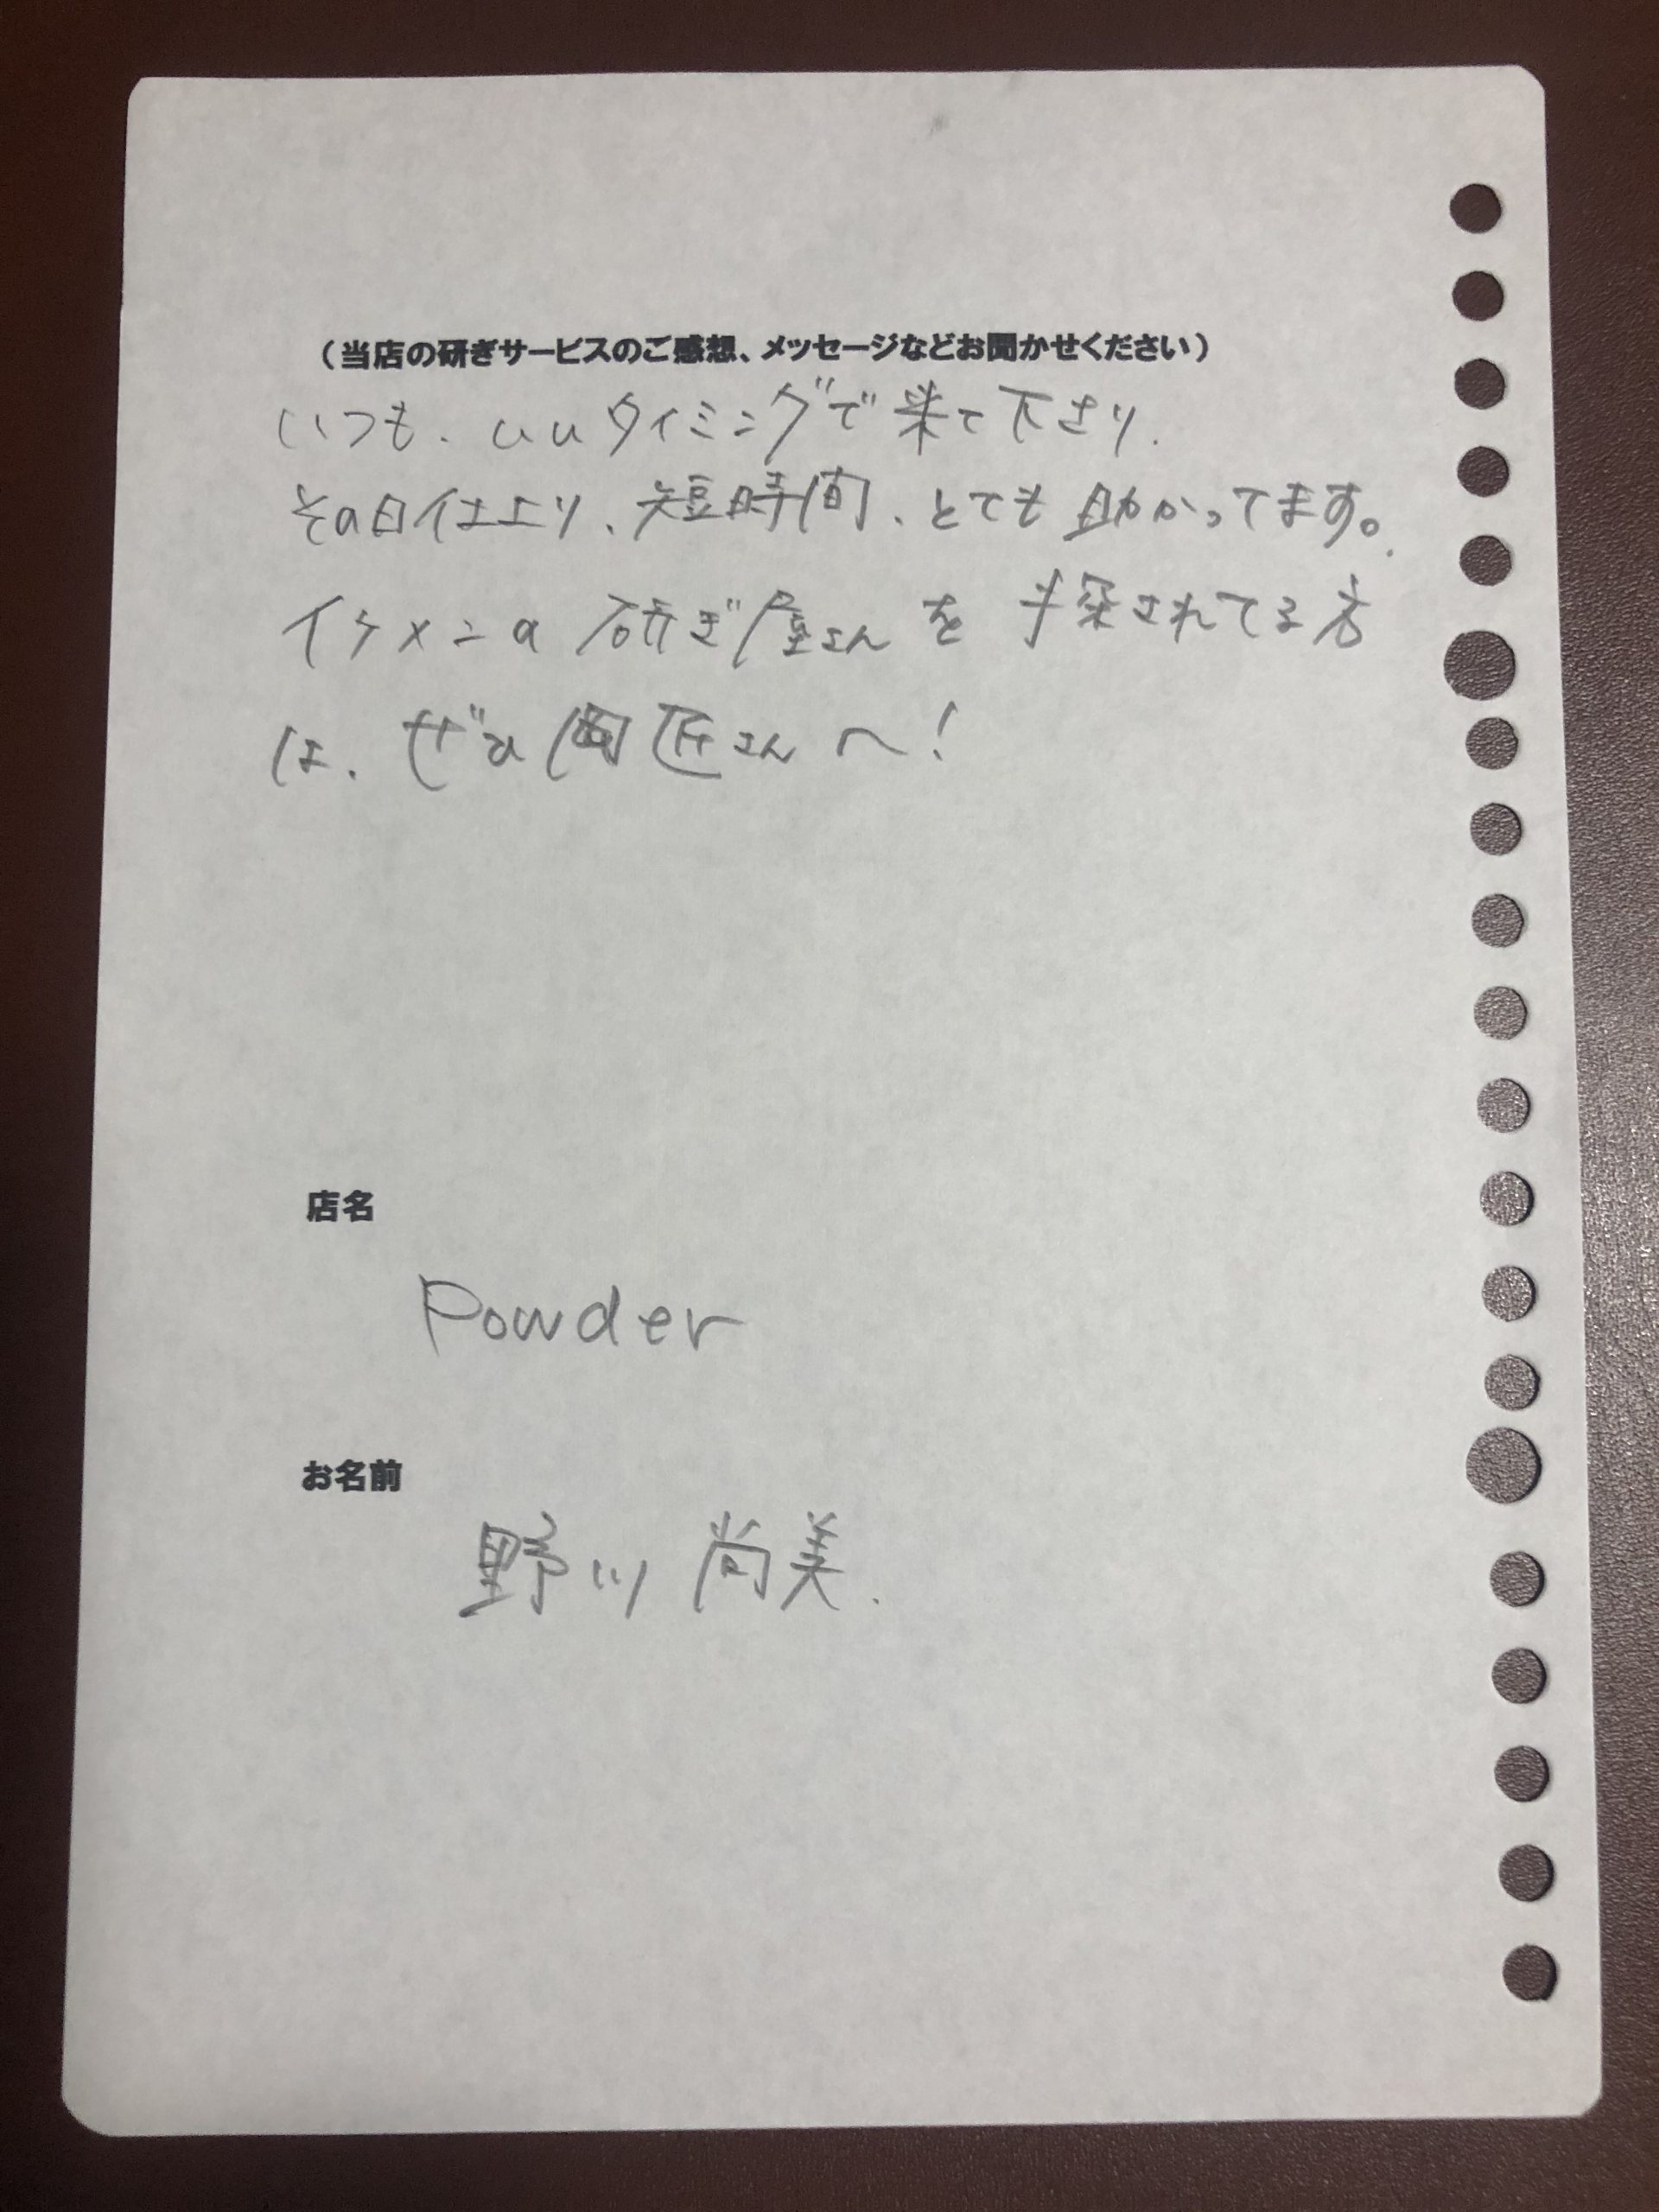 （当店の研ぎサービスのご感想、メッセージなどお聞かせください）
いつも、いいタイミングで来て下さり、
その日仕上り、短時間、とても助かってます。
イケメンの研ぎ屋さんを探されてる方
は、ぜひ 匠さんへ！
店名
Powder
お名前
野川 尚美.